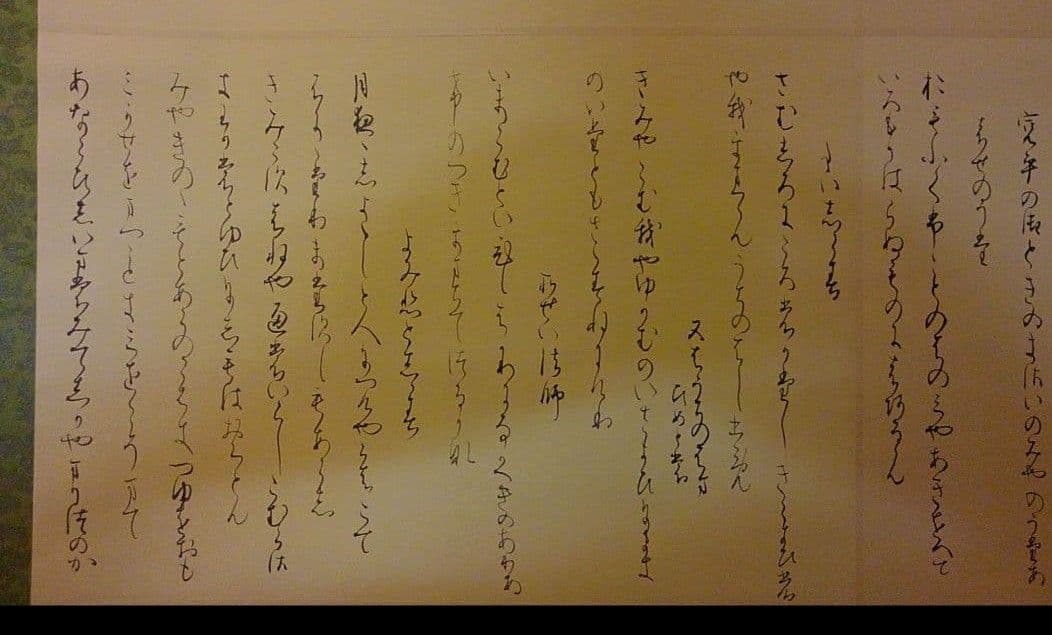 寛平の御ときのきさいのみやのうたあ
はせのうた
おもふてふことのはのみやあきをへて
いろもかはらぬものにはあるらん
たいしらす
さむしろにころもかたしきこよひも
や我をまつらんうちのはしひめ
又はうちのたま
ひめとも
きみやこむ我やゆかむのいさよひにまき
のいたともさゝすねにけり
そせい法師
いまこむといひしはかりになかつきのありあ
けのつきをまちいてつるかな
よみ人しらす
月夜よしよゝしと人につけやらはこて
ふにゝたりまたすしもあらす
きみこすはねやへもいらしこむらさ
きわかもとゆひにしもはおくとん
みやきのゝもとあらのこはきつゆをおも
みかせをまつこときみをこそまて
あなこひしいまもみてしかやまかつのか